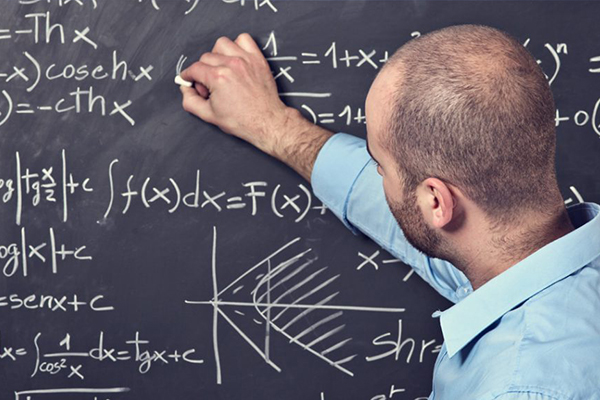 =-Thx
-x)cosehx
)=-cThx
1/x=1+x+
=1+
)ⁿ
+o(
og|tg x/2|+c
∫f(x)dx=F(x)+
og|x|+c
x→
=senx+c
x=∫1/cos²x dx=tgx+c
Shr=